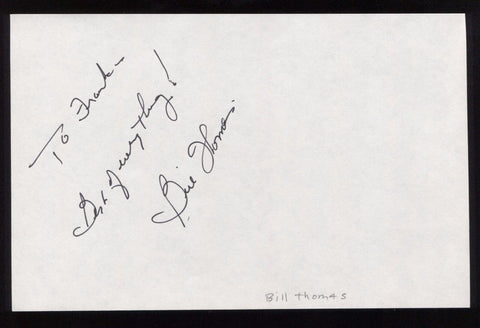 To Frank-
Best of everything!
Bill Thomas
Bill thomas